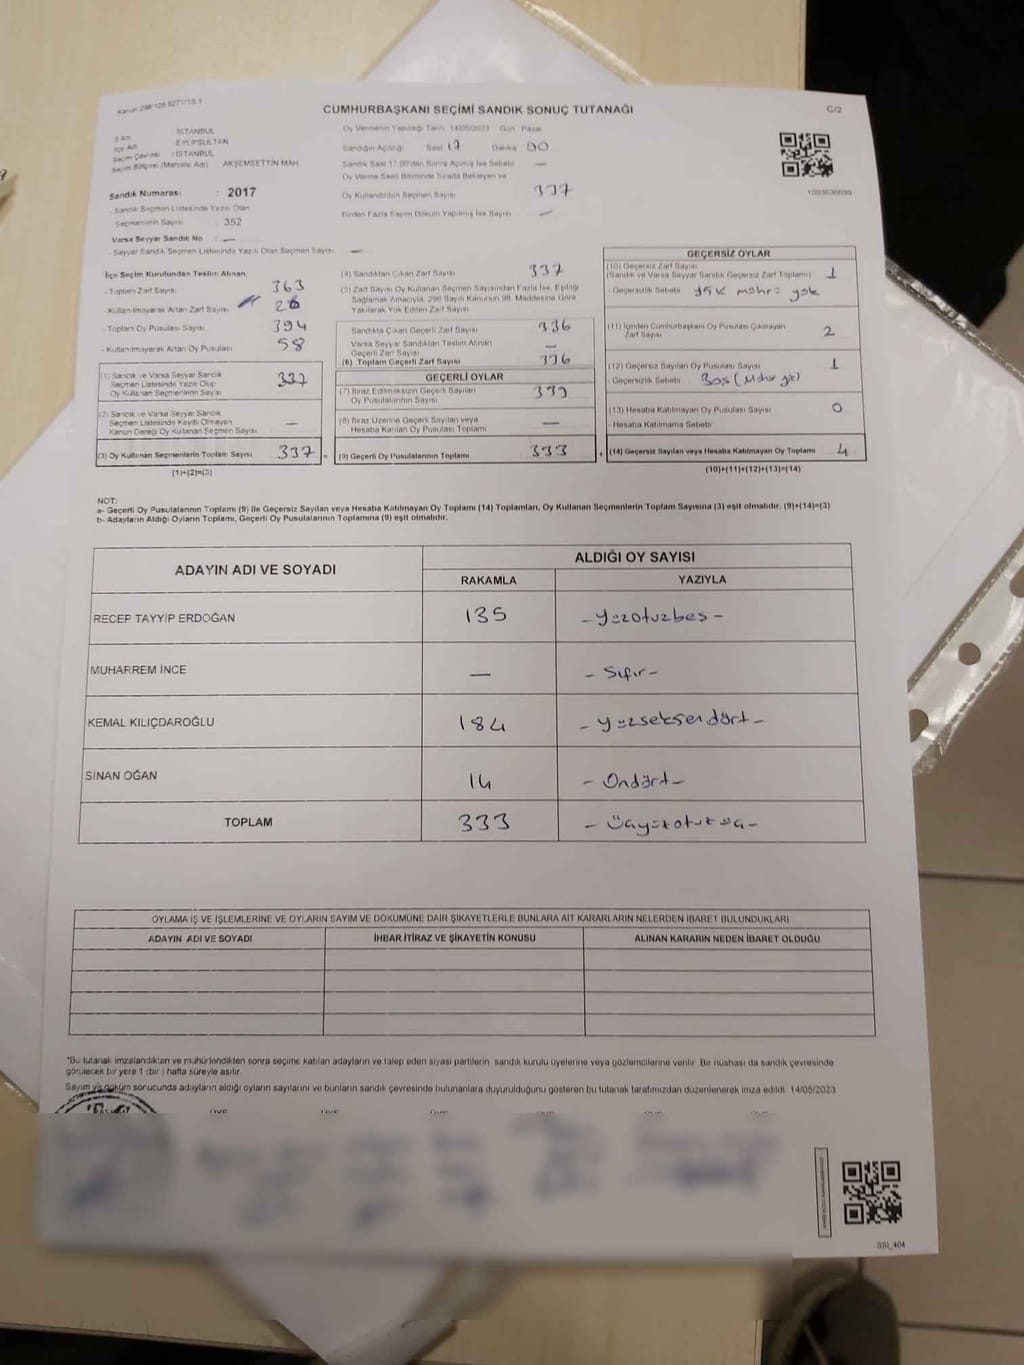 Kanun 298/105 6271/18.1
CUMHURBAŞKANI SEÇİMİ SANDIK SONUÇ TUTANAĞI
C/2
İl Adı : İSTANBUL
İlçe Adı EYÜPSULTAN
Seçim Çevresi : İSTANBUL
Seçim Bölgesi (Mahalle Adı) AKŞEMSETTİN MAH
Sandık Numarası : 2017
- Sandık Seçmen Listesinde Yazılı Olan
Seçmenlerin Sayısı : 352
Varsa Seyyar Sandık No : —
- Seyyar Sandık Seçmen Listesinde Yazılı Olan Seçmen Sayısı —
Oy Vermenin Yapıldığı Tarih 14/05/2023 Gün Pazar
Sandığın Açıldığı Saat 17 Dakika 00
Sandık Saat 17.00'den Sonra Açılmış İse Sebebi —
Oy Verme Saati Bitiminde Sırada Bekleyen ve
Oy Kullandırılan Seçmen Sayısı 337
Birden Fazla Sayım Döküm Yapılmış İse Sayısı —
İlçe Seçim Kurulundan Teslim Alınan;
- Toplam Zarf Sayısı 363
- Kullanılmayarak Artan Zarf Sayısı 26
- Toplam Oy Pusulası Sayısı 394
- Kullanılmayarak Artan Oy Pusulası 58
(1) Sandık ve Varsa Seyyar Sandık
Seçmen Listesinde Yazılı Olup
Oy Kullanan Seçmenlerin Sayısı 337
(2) Sandık ve Varsa Seyyar Sandık
Seçmen Listesinde Kayıtlı Olmayan
Kanun Gereği Oy Kullanan Seçmen Sayısı —
(3) Oy Kullanan Seçmenlerin Toplam Sayısı 337
(1)+(2)=(3)
(4) Sandıktan Çıkan Zarf Sayısı 337
(5) Zarf Sayısı Oy Kullanan Seçmen Sayısından Fazla İse, Eşitliği
Sağlamak Amacıyla, 298 Sayılı Kanunun 98. Maddesine Göre
Yakılarak Yok Edilen Zarf Sayısı
Sandıkta Çıkan Geçerli Zarf Sayısı 336
Varsa Seyyar Sandıktan Teslim Alınan
Geçerli Zarf Sayısı —
(6) Toplam Geçerli Zarf Sayısı 336
GEÇERLİ OYLAR
(7) İtiraz Edilmeksizin Geçerli Sayılan
Oy Pusulalarının Sayısı 333
(8) İtiraz Üzerine Geçerli Sayılan veya
Hesaba Katılan Oy Pusulası Toplamı —
(9) Geçerli Oy Pusulalarının Toplamı 333
GEÇERSİZ OYLAR
(10) Geçersiz Zarf Sayısı
(Sandık ve Varsa Seyyar Sandık Geçersiz Zarf Toplamı) 1
- Geçersizlik Sebebi YSK mührü yok
(11) İçinden Cumhurbaşkanı Oy Pusulası Çıkmayan
Zarf Sayısı 2
(12) Geçersiz Sayılan Oy Pusulası Sayısı 1
- Geçersizlik Sebebi Boş
(13) Hesaba Katılmayan Oy Pusulası Sayısı 0
- Hesaba Katılmama Sebebi
(14) Geçersiz Sayılan veya Hesaba Katılmayan Oy Toplamı 4
(10)+(11)+(12)+(13)=(14)
NOT:
a- Geçerli Oy Pusulalarının Toplamı (9) ile Geçersiz Sayılan veya Hesaba Katılmayan Oy Toplamı (14) Toplamları, Oy Kullanan Seçmenlerin Toplam Sayısına (3) eşit olmalıdır. (9)+(14)=(3)
b- Adayların Aldığı Oyların Toplamı, Geçerli Oy Pusulalarının Toplamına (9) eşit olmalıdır.
ADAYIN ADI VE SOYADI ALDIĞI OY SAYISI
RAKAMLA YAZIYLA
RECEP TAYYİP ERDOĞAN 135 -Yüzotuzbeş-
MUHARREM İNCE — -Sıfır-
KEMAL KILIÇDAROĞLU 184 -Yüzseksendört-
SİNAN OĞAN 14 -Ondört-
TOPLAM 333 -Üçyüzotuzüç-
OYLAMA İŞ VE İŞLEMLERİNE VE OYLARIN SAYIM VE DÖKÜMÜNE DAİR ŞİKAYETLERLE BUNLARA AİT KARARLARIN NELERDEN İBARET BULUNDUKLARI
ADAYIN ADI VE SOYADI İHBAR İTİRAZ VE ŞİKAYETİN KONUSU ALINAN KARARIN NEDEN İBARET OLDUĞU
*Bu tutanak imzalandıktan ve mühürlendikten sonra seçime katılan adayların ve talep eden siyasi partilerin sandık kurulu üyelerine veya gözlemcilerine verilir. Bir nüshası da sandık çevresinde
görülecek bir yere 1 (bir) hafta süreyle asılır.
Sayım ve döküm sonucunda adayların aldığı oyların sayılarını ve bunların sandık çevresinde bulunanlara duyurulduğunu gösteren bu tutanak tarafımızdan düzenlenerek imza edildi. 14/05/2023
SSI_404